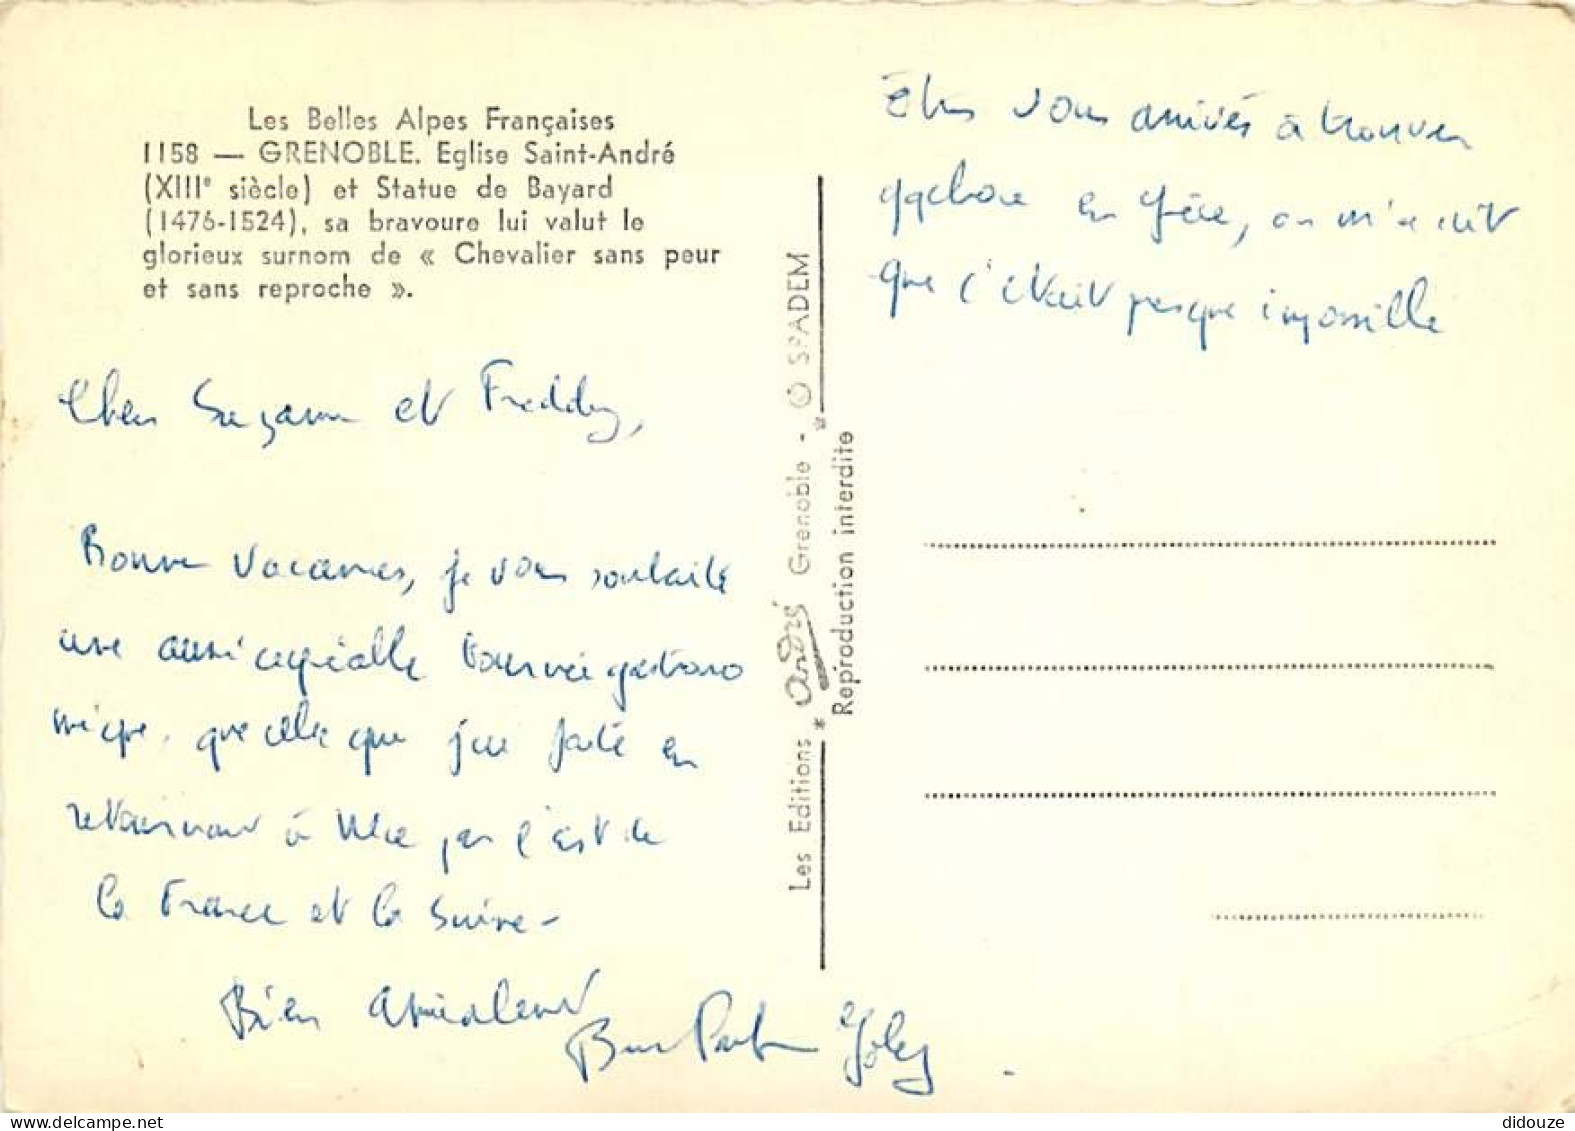 Les Belles Alpes Françaises
1158 — GRENOBLE. Eglise Saint-André
(XIIIe siècle) et Statue de Bayard
(1476-1524), sa bravoure lui valut le
glorieux surnom de « Chevalier sans peur
et sans reproche ».
Chers Suzanne et Freddy,
Bonnes vacances, je vous souhaite
une aussi agréable tournée gastrono
mique, que celle que j'ai faite en
retournant à Nice par l'est de
la France et la Suisse -
Bien amicalement
Les Editions * André Grenoble - © SPADEM *
Reproduction interdite
Etes vous arrivés à trouver
qqchose en Grèce, on m'a dit
que c'était presque impossible
didouze